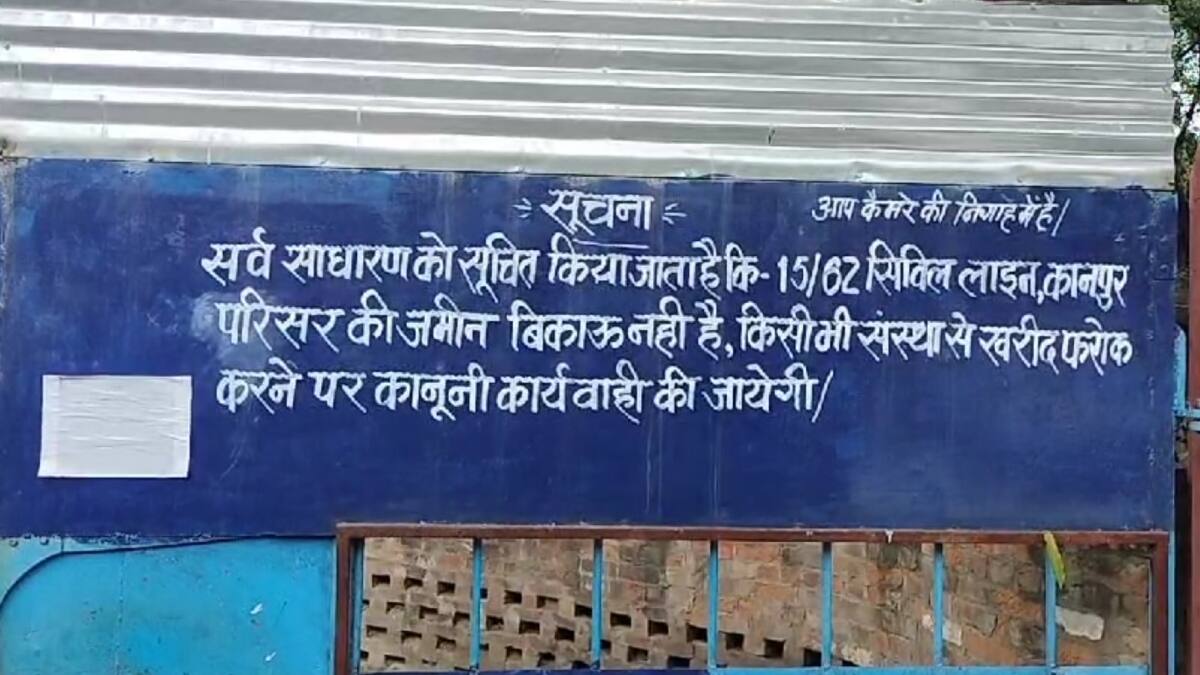 सूचना
आप कैमरे की निगाह में है/
सर्व साधारण को सूचित किया जाता है कि- 15/62 सिविल लाइन, कानपुर
परिसर की जमीन बिकाऊ नही है, किसी भी संस्था से खरीद फरोक
करने पर कानूनी कार्यवाही की जायेगी/